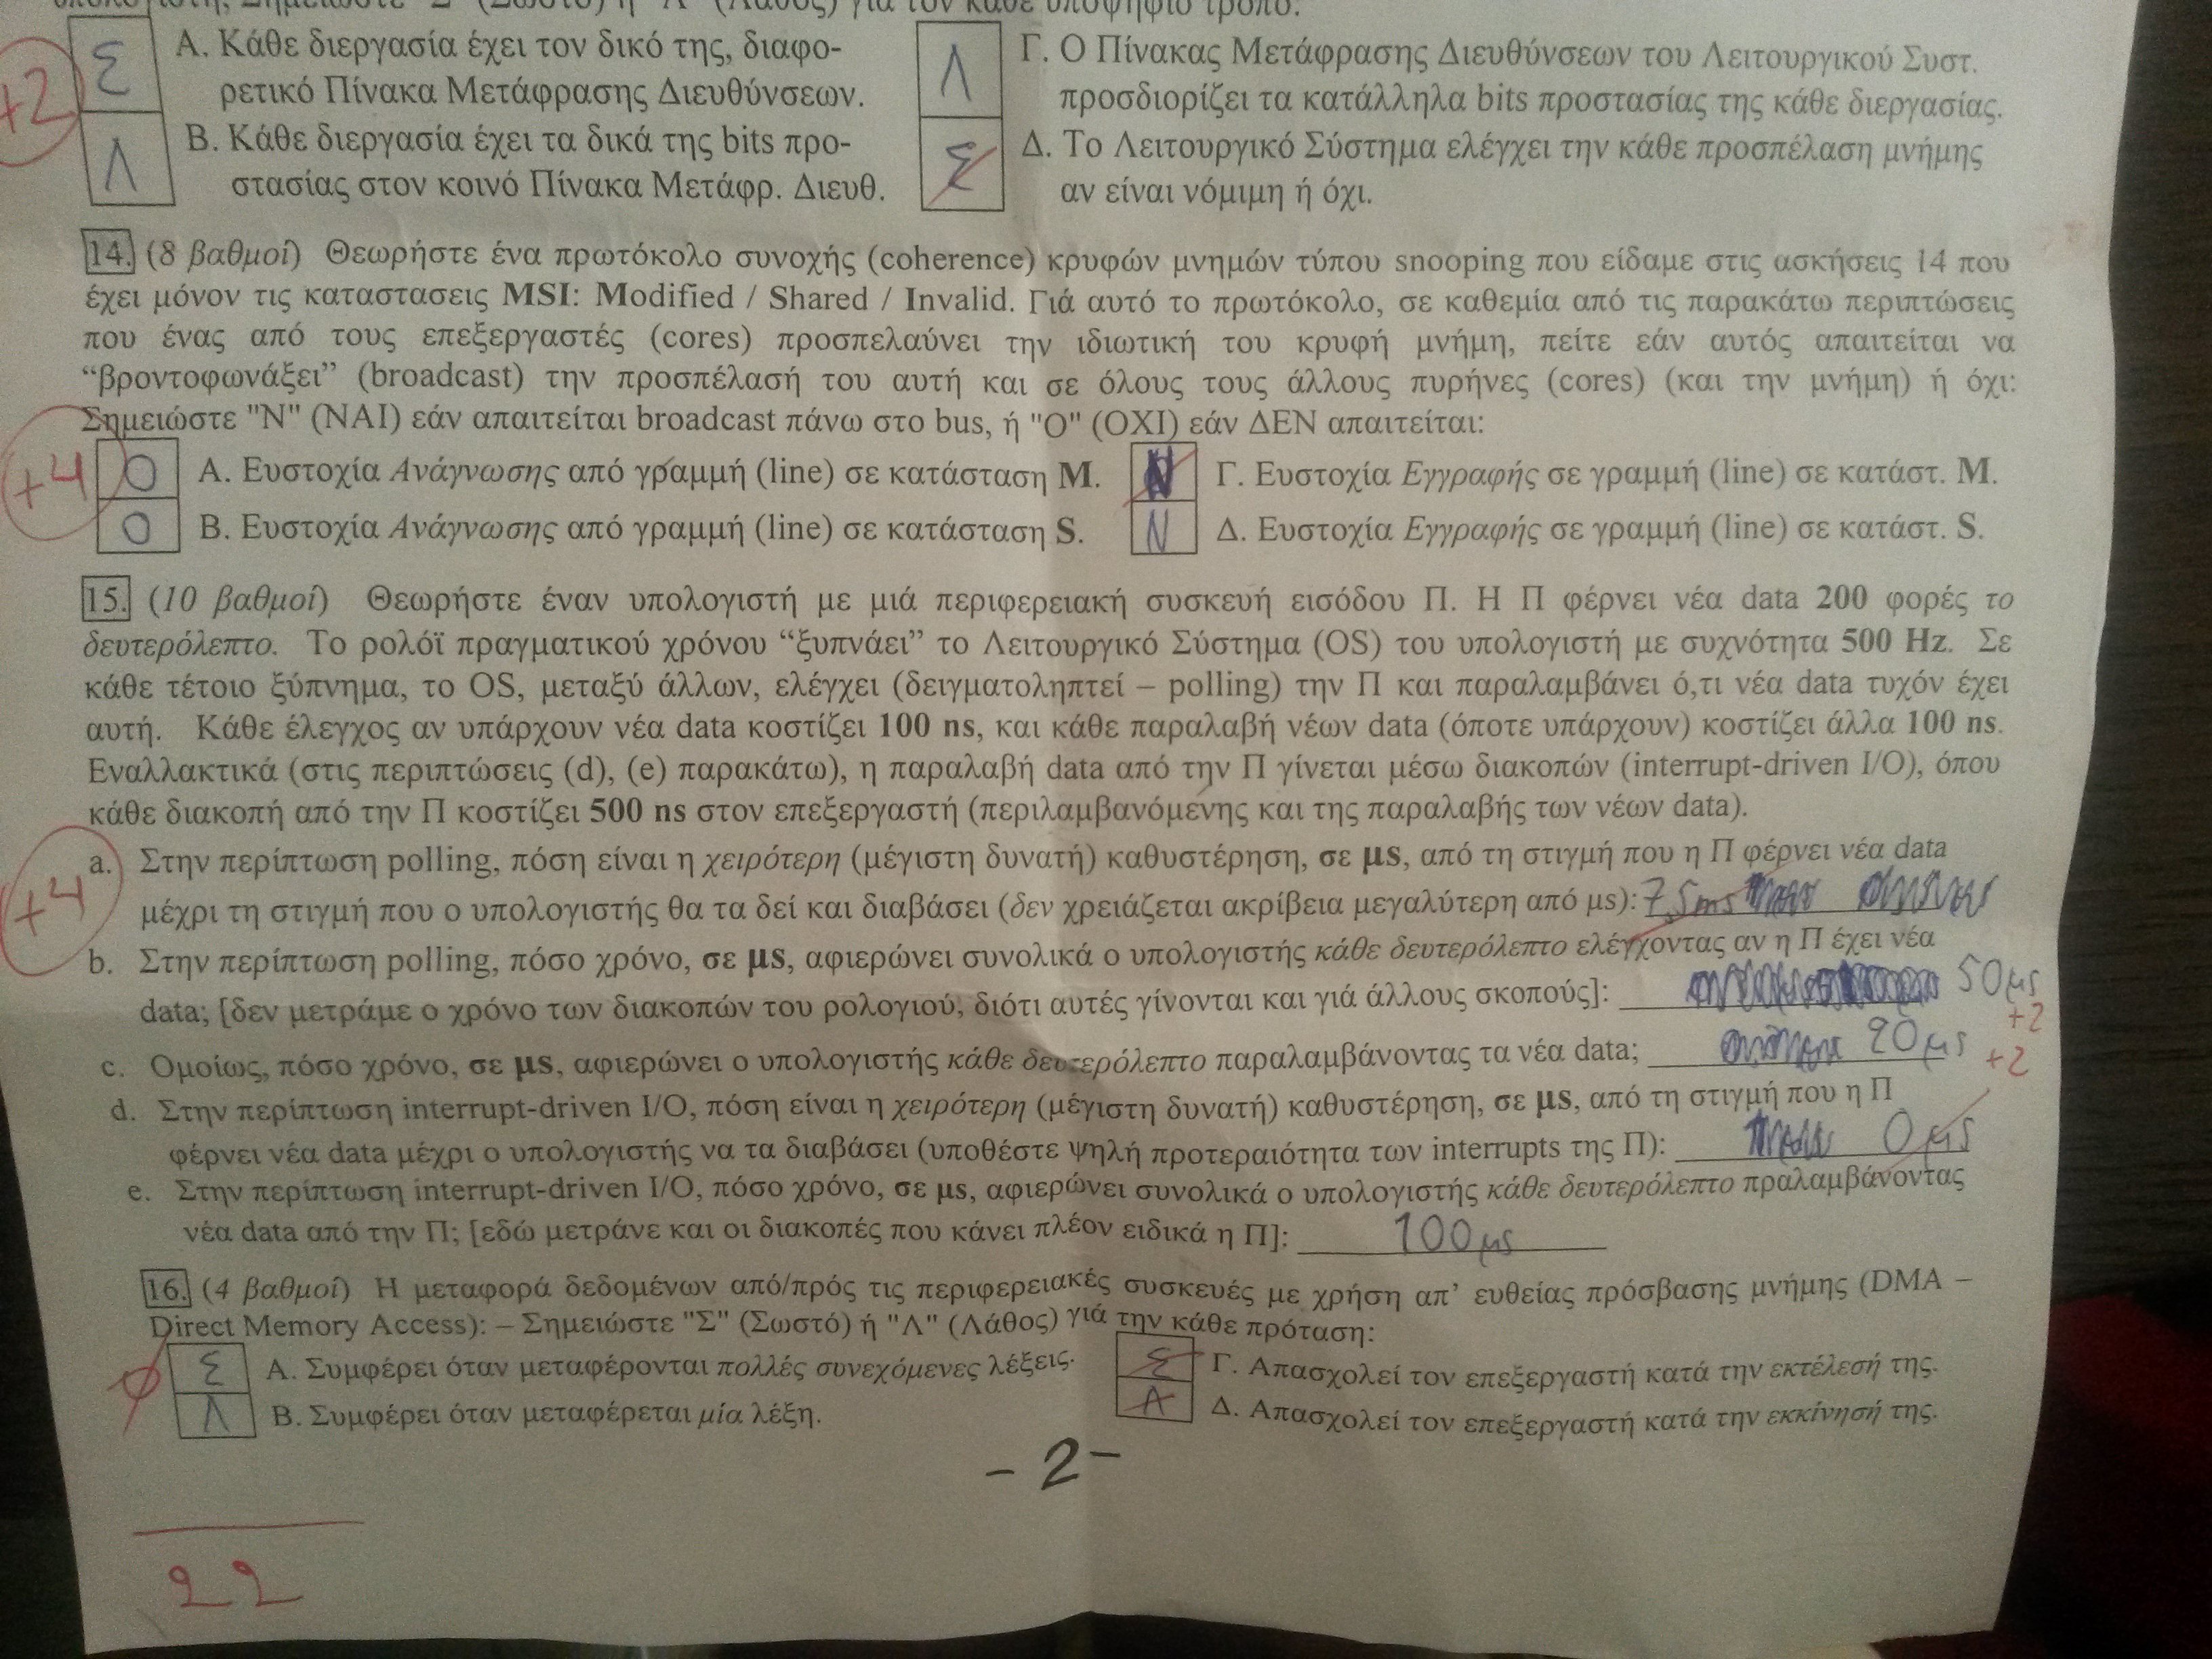 υπολογιστή; Σημειώστε "Σ" (Σωστό) ή "Λ" (Λάθος) για τον κάθε υποψήφιο τρόπο:
+2
Σ Α. Κάθε διεργασία έχει τον δικό της, διαφο-
ρετικό Πίνακα Μετάφρασης Διευθύνσεων.
Λ Β. Κάθε διεργασία έχει τα δικά της bits προ-
στασίας στον κοινό Πίνακα Μετάφρ. Διευθ.
Λ Γ. Ο Πίνακας Μετάφρασης Διευθύνσεων του Λειτουργικού Συστ.
προσδιορίζει τα κατάλληλα bits προστασίας της κάθε διεργασίας.
Σ Δ. Το Λειτουργικό Σύστημα ελέγχει την κάθε προσπέλαση μνήμης
αν είναι νόμιμη ή όχι.
14. (8 βαθμοί) Θεωρήστε ένα πρωτόκολο συνοχής (coherence) κρυφών μνημών τύπου snooping που είδαμε στις ασκήσεις 14 που
έχει μόνον τις καταστασεις MSI: Modified / Shared / Invalid. Γιά αυτό το πρωτόκολο, σε καθεμία από τις παρακάτω περιπτώσεις
που ένας από τους επεξεργαστές (cores) προσπελαύνει την ιδιωτική του κρυφή μνήμη, πείτε εάν αυτός απαιτείται να
“βροντοφωνάξει” (broadcast) την προσπέλασή του αυτή και σε όλους τους άλλους πυρήνες (cores) (και την μνήμη) ή όχι:
Σημειώστε "N" (NAI) εάν απαιτείται broadcast πάνω στο bus, ή "O" (OXI) εάν ΔΕΝ απαιτείται:
+4
O Α. Ευστοχία Ανάγνωσης από γραμμή (line) σε κατάσταση M.
O Β. Ευστοχία Ανάγνωσης από γραμμή (line) σε κατάσταση S.
N Γ. Ευστοχία Εγγραφής σε γραμμή (line) σε κατάστ. M.
N Δ. Ευστοχία Εγγραφής σε γραμμή (line) σε κατάστ. S.
15. (10 βαθμοί) Θεωρήστε έναν υπολογιστή με μιά περιφερειακή συσκευή εισόδου Π. Η Π φέρνει νέα data 200 φορές το
δευτερόλεπτο. Το ρολόϊ πραγματικού χρόνου “ξυπνάει” το Λειτουργικό Σύστημα (OS) του υπολογιστή με συχνότητα 500 Hz. Σε
κάθε τέτοιο ξύπνημα, το OS, μεταξύ άλλων, ελέγχει (δειγματοληπτεί – polling) την Π και παραλαμβάνει ό,τι νέα data τυχόν έχει
αυτή. Κάθε έλεγχος αν υπάρχουν νέα data κοστίζει 100 ns, και κάθε παραλαβή νέων data (όποτε υπάρχουν) κοστίζει άλλα 100 ns.
Εναλλακτικά (στις περιπτώσεις (d), (e) παρακάτω), η παραλαβή data από την Π γίνεται μέσω διακοπών (interrupt-driven I/O), όπου
κάθε διακοπή από την Π κοστίζει 500 ns στον επεξεργαστή (περιλαμβανόμενης και της παραλαβής των νέων data).
+4
a. Στην περίπτωση polling, πόση είναι η χειρότερη (μέγιστη δυνατή) καθυστέρηση, σε μs, από τη στιγμή που η Π φέρνει νέα data
μέχρι τη στιγμή που ο υπολογιστής θα τα δεί και διαβάσει (δεν χρειάζεται ακρίβεια μεγαλύτερη από μs): 7,5ms
b. Στην περίπτωση polling, πόσο χρόνο, σε μs, αφιερώνει συνολικά ο υπολογιστής κάθε δευτερόλεπτο ελέγχοντας αν η Π έχει νέα
data; [δεν μετράμε ο χρόνο των διακοπών του ρολογιού, διότι αυτές γίνονται και γιά άλλους σκοπούς]: 50μs
+2
c. Ομοίως, πόσο χρόνο, σε μs, αφιερώνει ο υπολογιστής κάθε δευτερόλεπτο παραλαμβάνοντας τα νέα data; 20μs
+2
d. Στην περίπτωση interrupt-driven I/O, πόση είναι η χειρότερη (μέγιστη δυνατή) καθυστέρηση, σε μs, από τη στιγμή που η Π
φέρνει νέα data μέχρι ο υπολογιστής να τα διαβάσει (υποθέστε ψηλή προτεραιότητα των interrupts της Π): 0μs
e. Στην περίπτωση interrupt-driven I/O, πόσο χρόνο, σε μs, αφιερώνει συνολικά ο υπολογιστής κάθε δευτερόλεπτο πραλαμβάνοντας
νέα data από την Π; [εδώ μετράνε και οι διακοπές που κάνει πλέον ειδικά η Π]: 100μs
16. (4 βαθμοί) Η μεταφορά δεδομένων από/πρός τις περιφερειακές συσκευές με χρήση απ’ ευθείας πρόσβασης μνήμης (DMA –
Direct Memory Access): – Σημειώστε "Σ" (Σωστό) ή "Λ" (Λάθος) γιά την κάθε πρόταση:
Σ Α. Συμφέρει όταν μεταφέρονται πολλές συνεχόμενες λέξεις.
Λ Β. Συμφέρει όταν μεταφέρεται μία λέξη.
Σ Γ. Απασχολεί τον επεξεργαστή κατά την εκτέλεσή της.
Λ Δ. Απασχολεί τον επεξεργαστή κατά την εκκίνησή της.
- 2 -
22